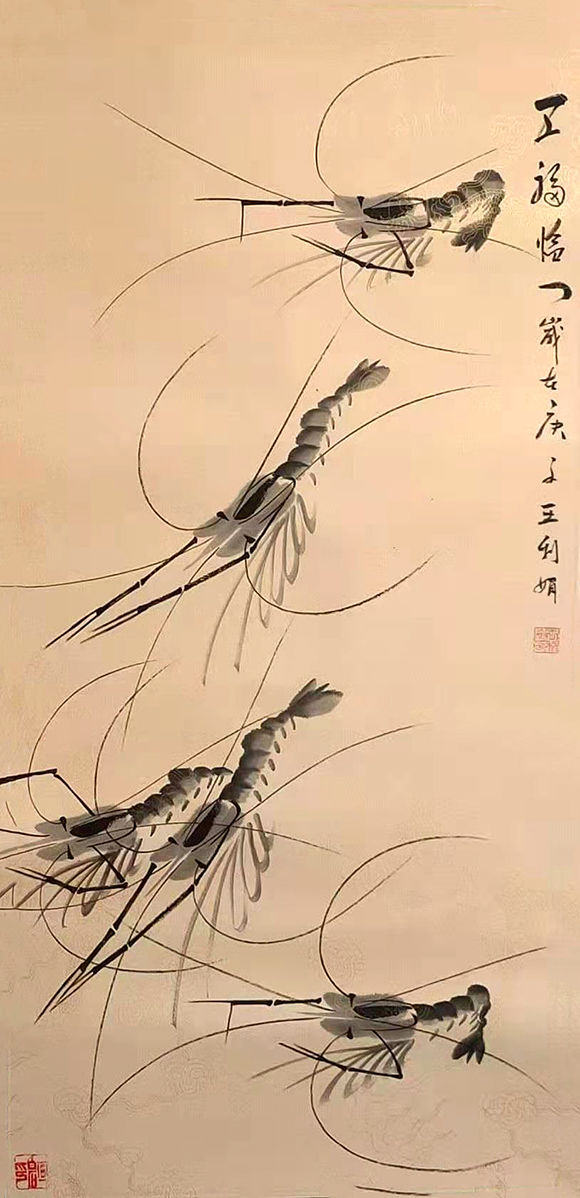 五福临门歲在庚子王利娟